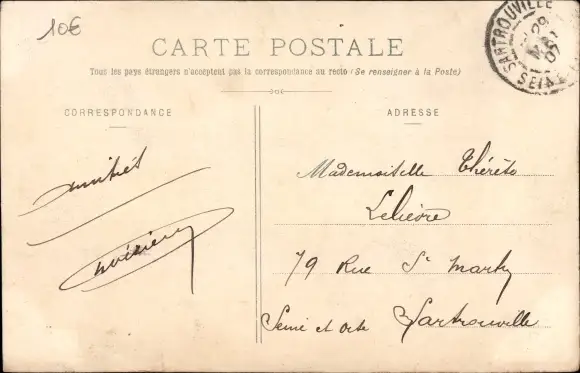 10€
CARTE POSTALE
Tous les pays étrangers n'acceptent pas la correspondance au recto (Se renseigner à la Poste)
CORRESPONDANCE
ADRESSE
SARTROUVILLE
29
MAI
07
SEINE
amitiés
Mademoiselle Thérèse
Lelièvre
79 Rue St
Seine et Oise Sartrouville